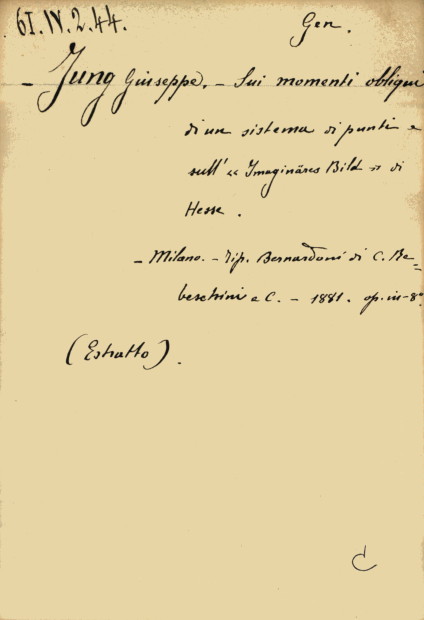 61.IV.2.44.
Gen.
- Jung Giuseppe. - Sui momenti obliqui
di un sistema di punti e
sull' « Imaginäres Bild » di
Hesse.
- Milano. - Tip. Bernardoni di C. Re=
beschini e C. - 1881. op. in-8°.
(Estratto).
C